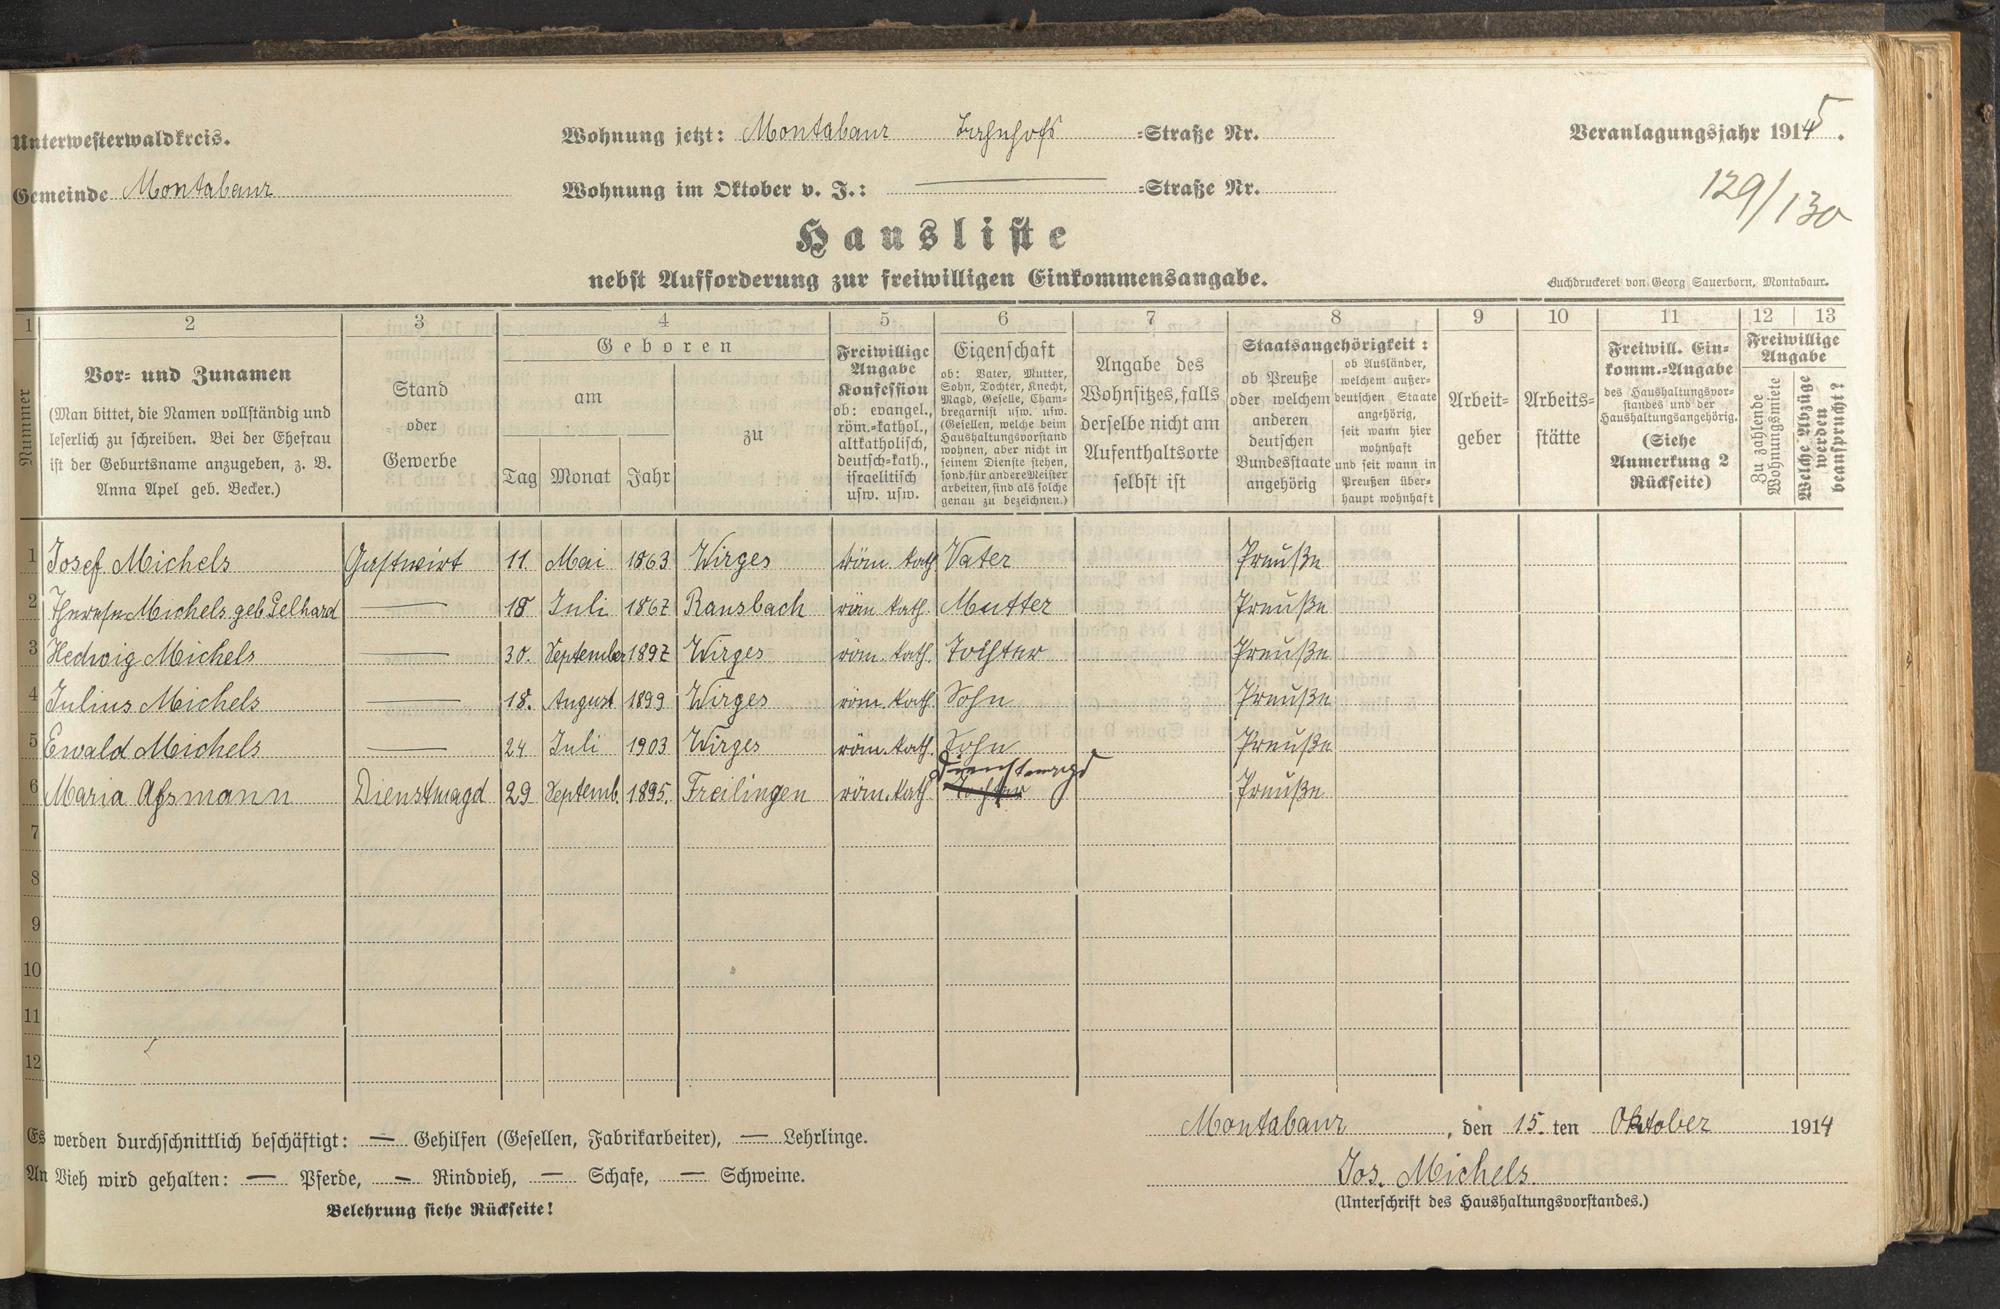 Unterwesterwaldkreis.
Wohnung jetzt: Montabaur Bahnhofs -Straße Nr.
Veranlagungsjahr 1915.
Gemeinde Montabaur
Wohnung im Oktober v. J.: -Straße Nr.
129/130
Hausliste
nebst Aufforderung zur freiwilligen Einkommensangabe.
Buchdruckerei von Georg Sauerborn, Montabaur.
1 2 3 4 5 6 7 8 9 10 11 12 13
Nummer
Vor- und Zunamen
(Man bittet, die Namen vollständig und
leserlich zu schreiben. Bei der Ehefrau
ist der Geburtsname anzugeben, z. B.
Anna Apel geb. Becker.)
Stand
oder
Gewerbe
Geboren
am
Tag Monat Jahr
zu
Freiwillige
Angabe
Konfession
ob: evangel.,
röm.-kathol.,
altkatholisch,
deutsch-kath.,
israelitisch
usw. usw.
Eigenschaft
ob: Vater, Mutter,
Sohn, Tochter, Knecht,
Magd, Geselle, Cham-
bregarnist usw. usw.
(Gesellen, welche beim
Haushaltungsvorstand
wohnen, aber nicht in
seinem Dienste stehen,
sond. für andere Meister
arbeiten, sind als solche
genau zu bezeichnen.)
Angabe des
Wohnsitzes, falls
derselbe nicht am
Aufenthaltsorte
selbst ist
Staatsangehörigkeit:
ob Preuße
oder welchem
anderen
deutschen
Bundesstaate
angehörig
ob Ausländer,
welchem außer-
deutschen Staate
angehörig,
seit wann hier
wohnhaft
und seit wann in
Preußen über-
haupt wohnhaft
Arbeit-
geber
Arbeits-
stätte
Freiwill. Ein-
komm.-Angabe
des Haushaltungsvor-
standes und der
Haushaltungsangehörig.
(Siehe
Anmerkung 2
Rückseite)
Freiwillige
Angabe
Zu zahlende
Wohnungsmiete
Welche Abzüge
werden
beansprucht?
1 Josef Michels Gastwirt 11. Mai 1863 Wirges röm. kath. Vater Preuße
2 Therese Michels geb. Gelhard 18 Juli 1867 Ransbach röm kath. Mutter Preuße
3 Hedwig Michels 30. September 1897 Wirges röm. kath. Tochter Preuße
4 Julius Michels 18. August 1899 Wirges röm. kath. Sohn Preuße
5 Ewald Michels 24 Juli 1903 Wirges röm. kath. Sohn Preuße
6 Maria Assmann Dienstmagd 29 Septemb. 1895. Freilingen röm. kath. Tochter Dienstmagd Preuße
7
8
9
10
11
12
Montabaur, den 15. ten Oktober 1914
Es werden durchschnittlich beschäftigt: — Gehilfen (Gesellen, Fabrikarbeiter), — Lehrlinge.
An Vieh wird gehalten: — Pferde, — Rindvieh, — Schafe, — Schweine.
Jos. Michels.
(Unterschrift des Haushaltungsvorstandes.)
Belehrung siehe Rückseite!